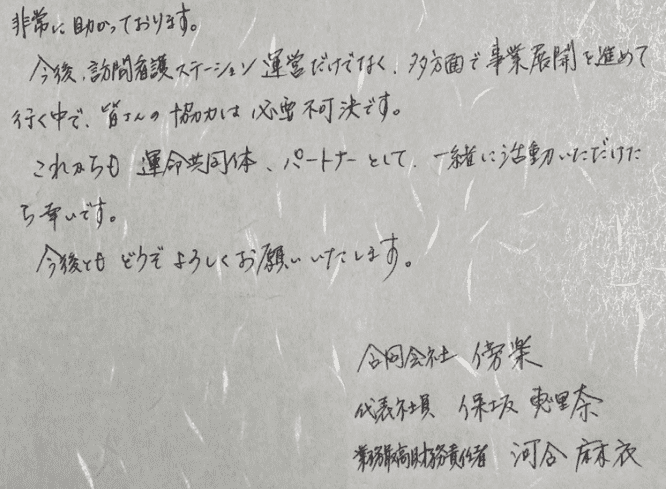 非常に助かっております。
今後、訪問看護ステーション運営だけでなく、多方面で事業展開を進めて
行く中で、皆さんの協力は必要不可決です。
これからも運命共同体、パートナーとして、一緒に活動いただけた
ら幸いです。
今後ともどうぞよろしくお願いいたします。
合同会社 傍楽
代表社員 保坂 恵里奈
業務最高財務責任者 河合 麻衣